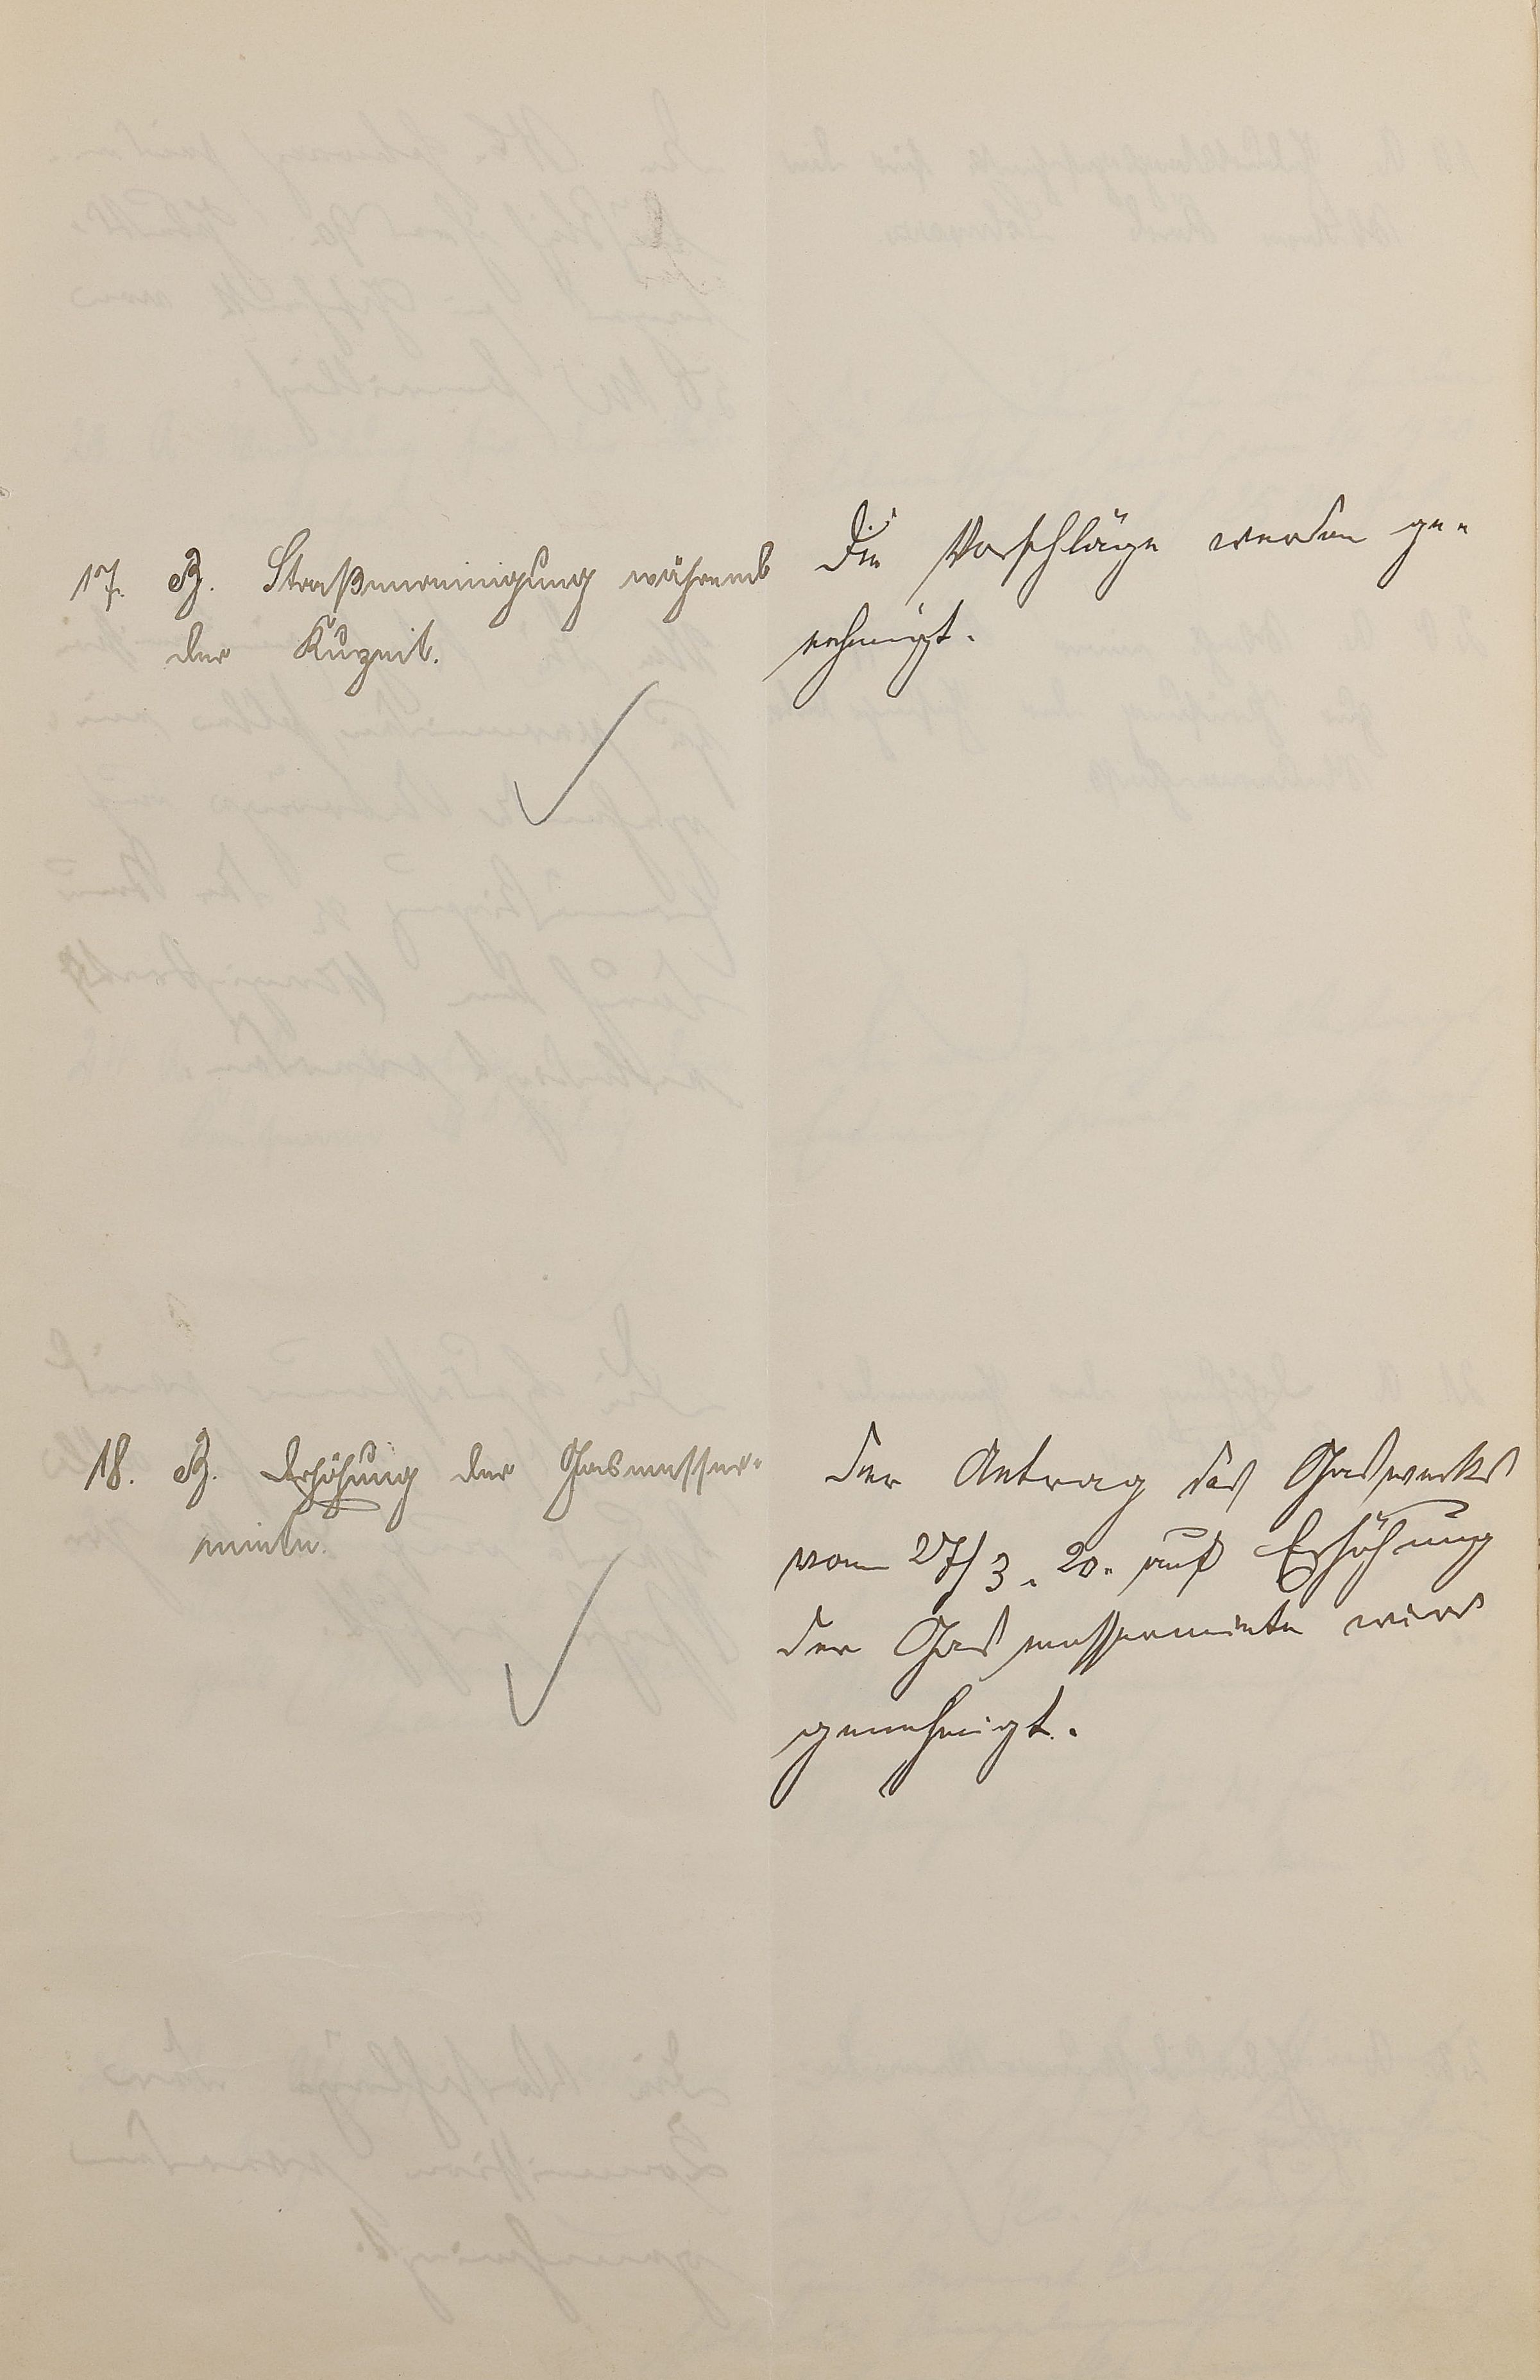 17. B. Straßenreinigung während
der Kurzeit.
Die Vorschläge werden ge-
nehmigt.
18. B. Erhöhung der Gasmesser-
miete.
Der Antrag des Gaswerks
vom 27/3. 20. auf Erhöhung
der Gasmessermiete wird
genehmigt.